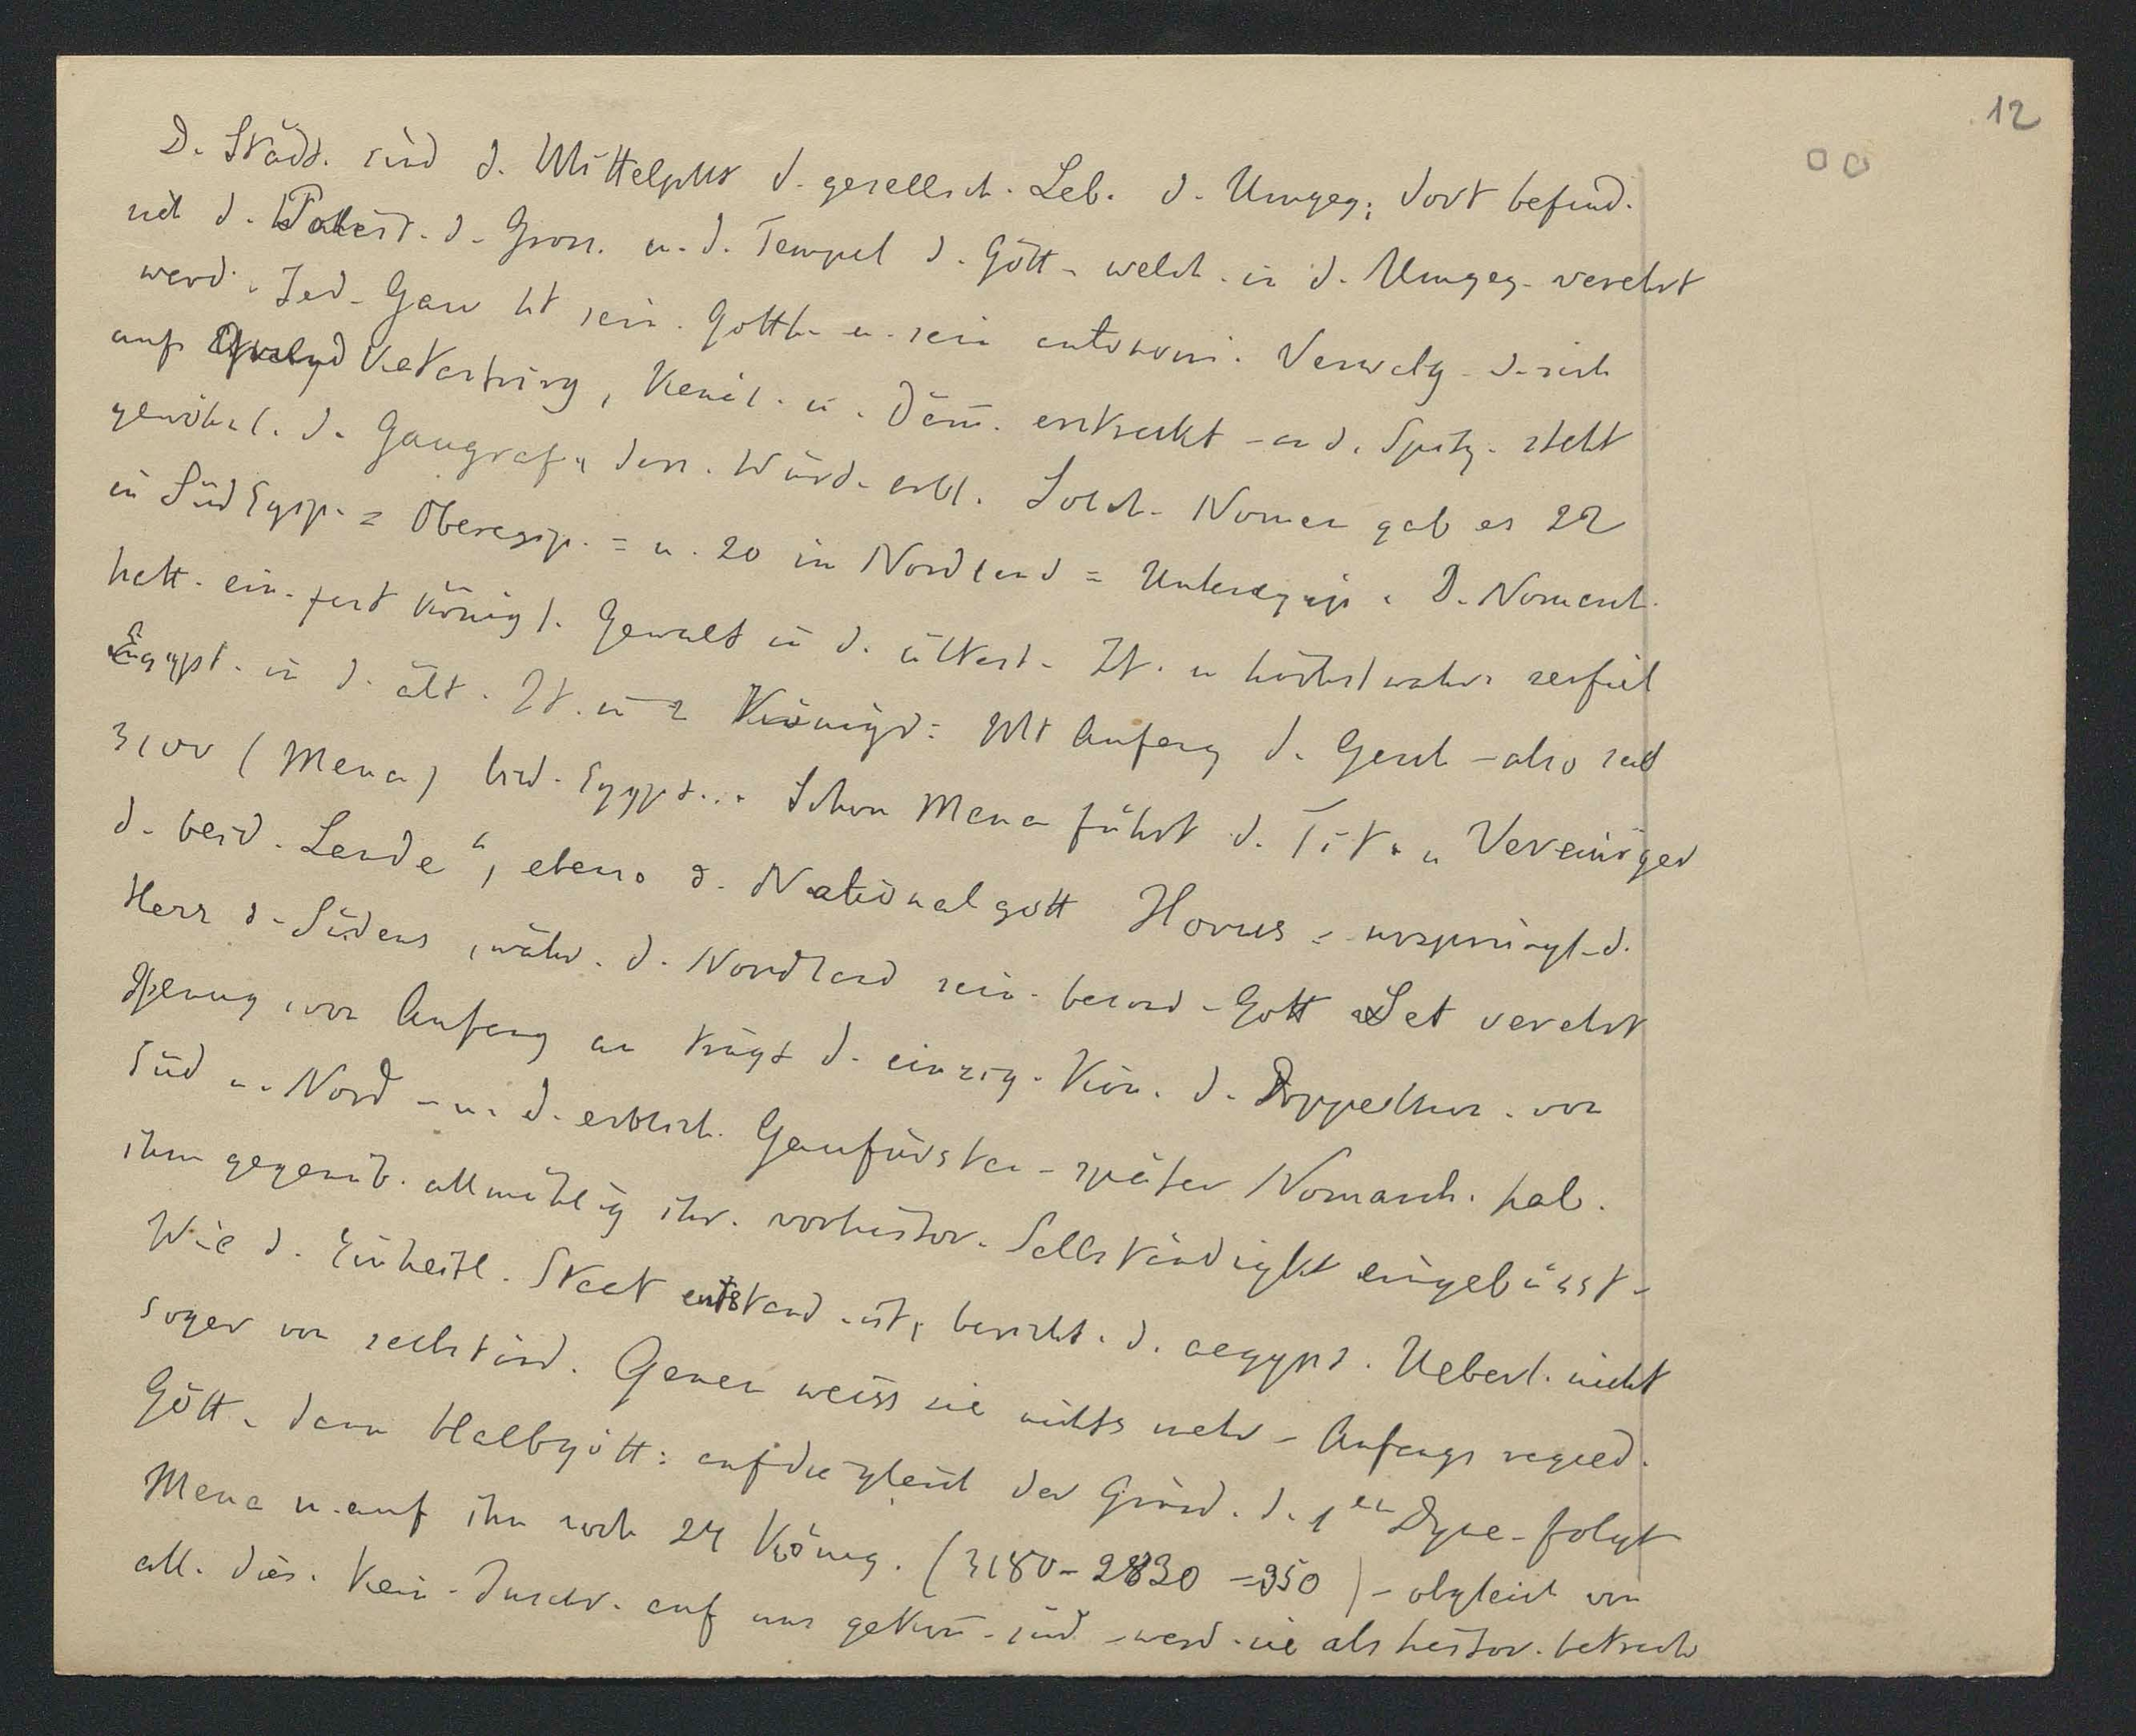 12
D. Städt. sind d. Mittelpkt d. gesellsch. Leb. d. Umgeg; dort befind.
sich d. Paläst. d. Gross. u. d. Tempel d. Gött. welch. in d. Umgeg. verehrt
werd. Jed. Gau ht sein. Gotth. u. sein autonom. Verwltg. d. sich
auf Katastrirg, Kanäl. u. Däm. erstreckt - an d. Spitz. steht
gewöhnl. d. Gaugraf, dess. Würd. erbl. Solch. Nomen gab es 22
in SüdEgyp. = Oberegyp. = u. 20 in Nordland = Unteregyp. D. Nomarch.
hatt. ein. fast königl. Gewalt in d. ältest. Zt. u höchstwahrs zerfiel
Egypt. in d. ält. Zt. in 2 Königr: Mt Anfang d. Gesch - also seit
3100 (Mena) bild. Egypt... Schon Mena führt d. Tit. „Vereiniger
d. beid. Lande“, ebenso d. Nationalgott Horus = ursprüngl. d.
Herr d. Südens, währ. d. Nordland sein. besond. Gott Set verehrt
von Anfang an trägt d. einzig. Kön. d. Doppelkron. von
Süd u. Nord - u. d. erblich. Gaufürsten - später Nomarch. hab.
ihm gegenüb. allmählig ihr. vorhistor. Selbständigkt eingebüsst -
Wie d. Einheitl. Staat entstand. ist, bericht. d. aegypt. Ueberl. nicht
sogar von selbständ. Gauen weiss sie nichts mehr - Anfangs regierd.
Gött. dann Halbgött: auf die gleich der Gründ. d. 1en Dyne. folgt
Mena u. auf ihn noch 24 König. (3180-2830 = 350) - obgleich von
all. dies. Kein. Inschr. auf uns gekom. sind - werd. sie als histor. betracht